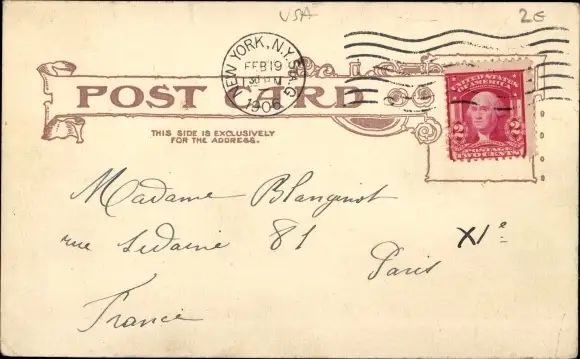 USA 2€
NEW YORK, N.Y. STA. G
FEB 19
1906
POST CARD
UNITED STATES
OF AMERICA
2 2
POSTAGE
TWO CENTS
THIS SIDE IS EXCLUSIVELY
FOR THE ADDRESS.
Madame Blanginot
rue Sedaine 81 XIe
Paris
France